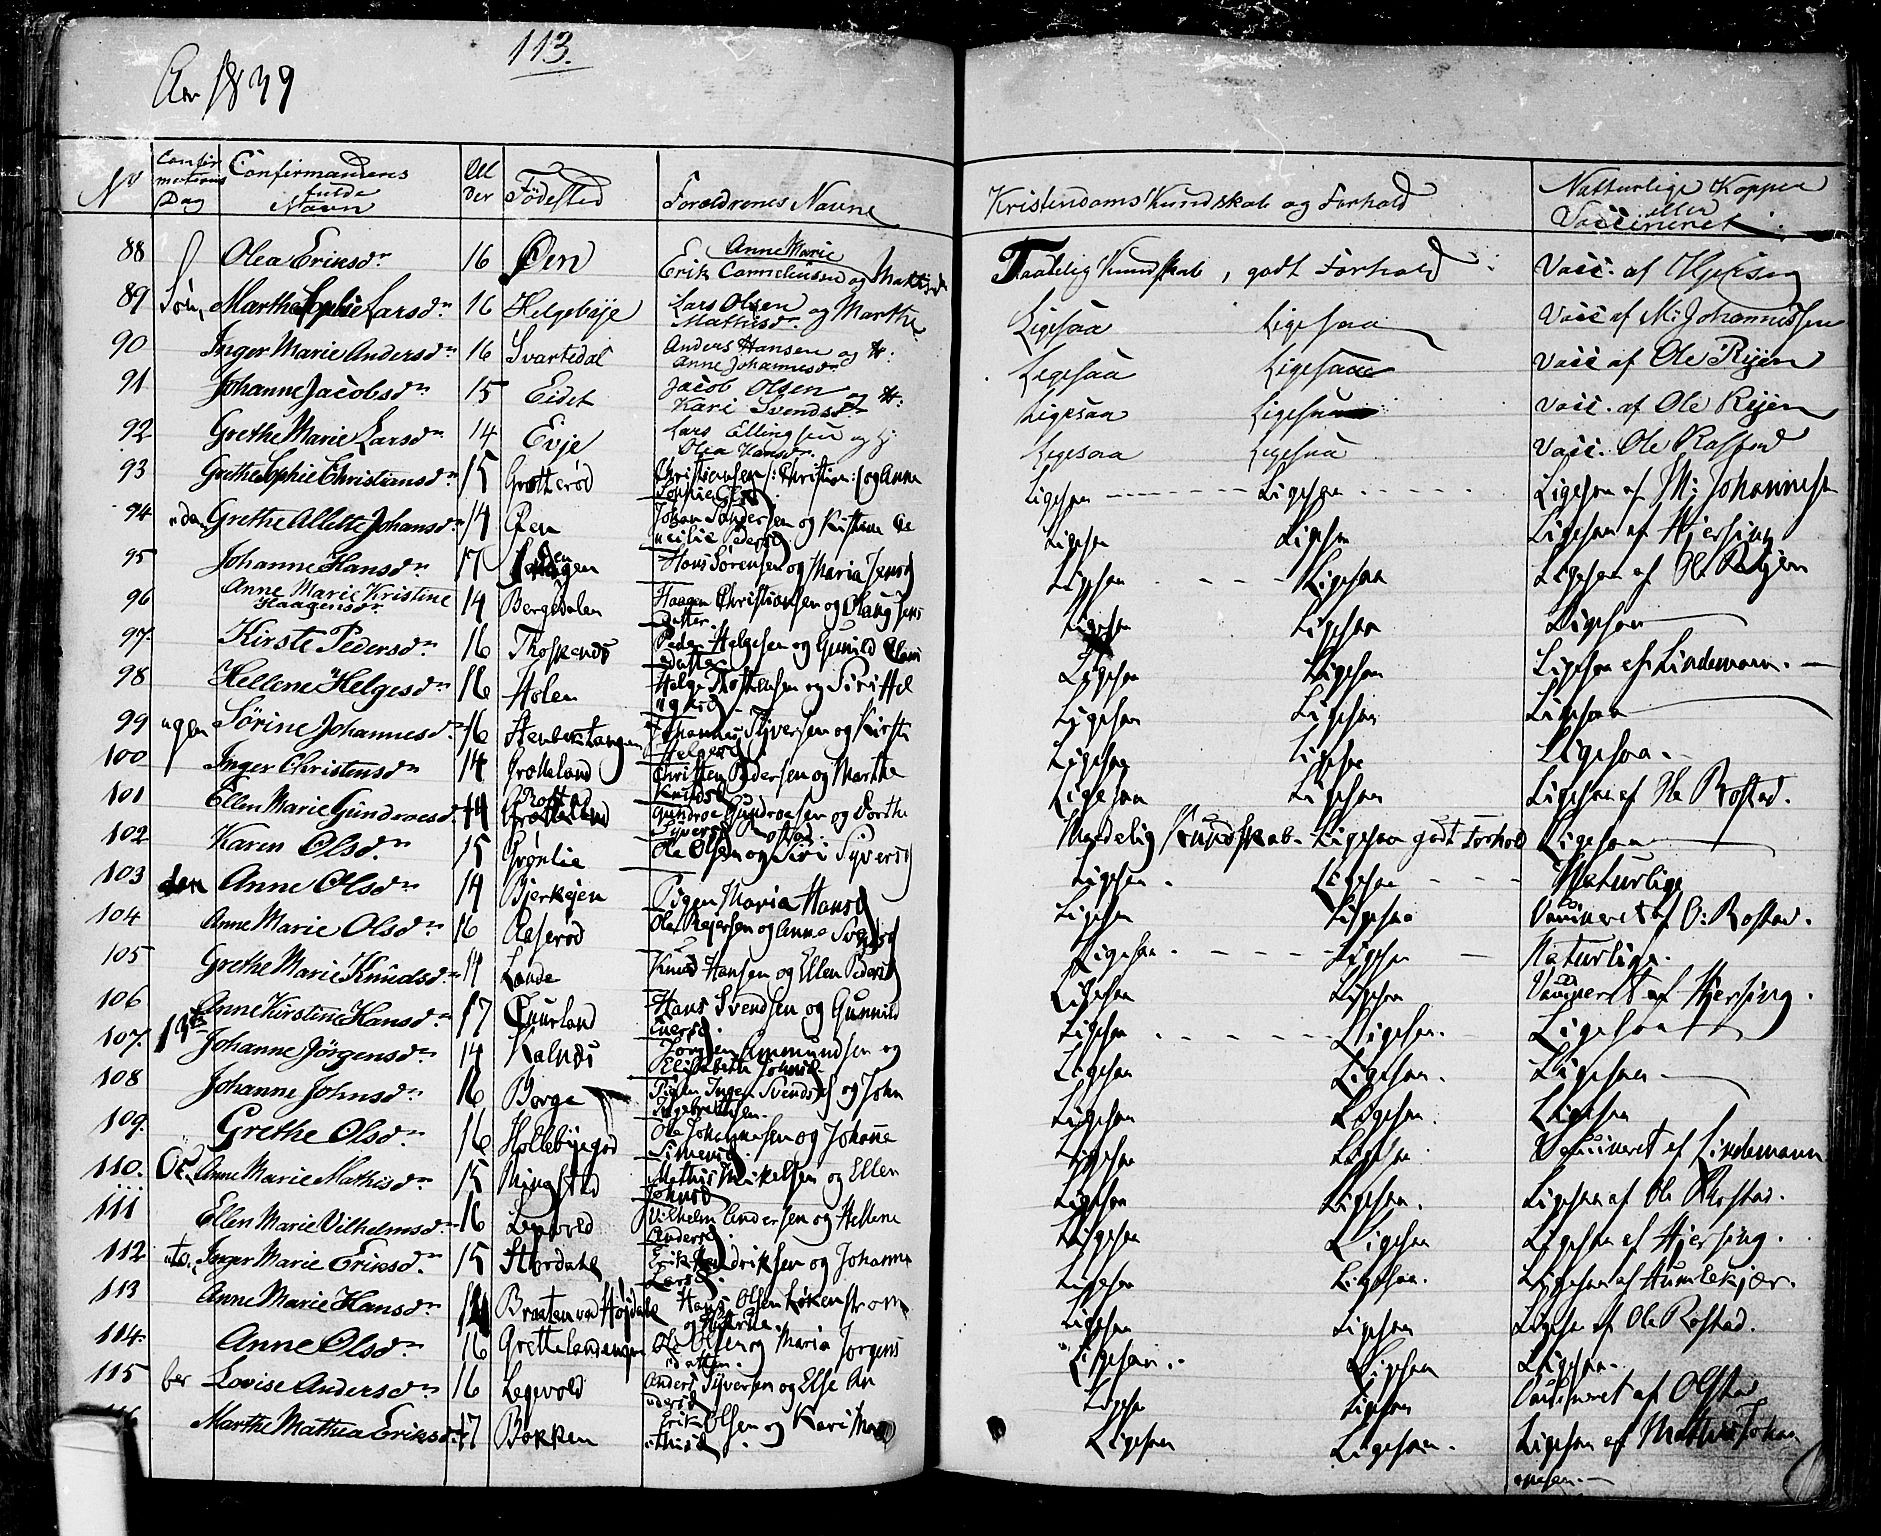 113.
Aar 1839
No Confirmations Dag Confirmandens fulde Navn Alder Fødested Foreldrenes Navne Kristendoms Kundskab og Forhold Naturlige Kopper eller Vaccineret
88 Olea Eriksdr 16 Øen Anne Marie Erik Corneliussen og Taalelig Kundskab, godt Forhold Vacc. af Hjersing
89 Marthe Sophie Larsdr 16 Helgebye Lars Olsen og Marthe Mathisdr Ligesaa Ligesaa Vacc af M: Johannissen
90 Inger Marie Andersdr 16 Svartedal Anders Hansen og H: Anne Johannesdr Ligesaa Ligesaa Vacc af Ole Rejen
91 Johanne Jacobsdr 15 Eidet Jacob Olsen og H: Kari Svendsdr Ligesaa Ligesaa Vacc. af Ole Rejen
92 Grethe Marie Larsdr 14 Evje Lars Ellingsen og H: Olea Hansdr Ligesaa Ligesaa Vacc. Ole Rastad
93 Grethe Sophie Christiansdr 15 Grøtterød Christiansen /: Christian :/ og Anne Sophie Ligesaa Ligesaa Ligesaa af M: Johannesen
94 Grethe Allette Johansdr 14 Øen Johan Pedersen og Kistine Cecilie Pedersd Ligesaa Ligesaa Ligesaa af Hjersing
95 Johanne Hansdr 17 Hans Sørensen og Maria Jensd Ligesaa Ligesaa Ligesaa af Ole Rejen
96 Anne Marie Kristine Haagensdr 14 Bergedalen Haagen Christiansen og Olaug Jens datter. Ligesaa Ligesaa Ligesaa
97 Kirste Pedersdr 16 Thoskenæs Peder Helgesen og Gunild Clausdatter Ligesaa Ligesaa Ligesaa af Lindemann.
98 Hellene Helgesdr 16 Holen Helge Thostensen og Siri Ligesaa Ligesaa Ligesaa
99 Sørine Johannesdr 16 Stenbæktangen Johannes Syversen og Kirsti Helgesd Ligesaa Ligesaa Ligesaa.
100 Inger Christensdr 14 Grøtteland Christen Pedersen og Marthe Knudsd Ligesaa Ligesaa Ligesaa af Ole Rostad.
101 Ellen Marie Gundroesdr 14 Rostad Gundroe Gundroesen og Dorthe Syversd Rostad. Maadelig Kundskab. Ligesaa godt Forhold Ligesaa
102 Karen Olsdr 15 Grønlie Ole Olsen og Siri Syversd Ligesaa. Ligesaa Naturlige
103 Anne Olsdr 14 Bjerkejen Pigen Maria Hansd Ligesaa Ligesaa Vaccineret af O: Rostad.
104 Anne Marie Olsdr 16 Raserød Ole Rejersen og Anne Svendsd Ligesaa. Ligesaa Naturlige.
105 Grethe Marie Knudsdr 14 Lande Knud Hansen og Ellen Pedersd Ligesaa Ligesaa Vaccineret af Hjersing.
106 Anne Kirstine Hansdr 17 Hans Svendsen og Gunnild Iversd. Ligesaa Ligesaa. Ligesaa
107. Johanne Jørgensdr 14 Kalnæs Jørgen Ammundsen og Elisabeth Johnsd Ligesaa Ligesaa. Ligesaa
108 Johanne Johnsdr 16 Borge Pigen Inger Svendsd og John Ingebretsen. Ligesaa Ligesaa. Ligesaa
109. Grethe Olsdr 16 Hollebyegod Ole Johannesen og Johanne Simensd. Ligesaa Ligesaa. Vaccineret af Lindemann
110. Anne Marie Mathisdr 15 Ringstad Mathis Mikelsen og Ellen Johnsd Ligesaa Ligesaa. Ligesaa af Ole Rostad.
111 Ellen Marie Vilhelmsdr 16 Legvold Vilhelm Andersen og Hellene Andersd. Ligesaa Ligesaa Ligesaa af Hjersing.
112 Inger Marie Eriksdr 15 Stordahl Erik Hendriksen og Johanne Larsd. Ligesaa Ligesaa. Ligesaa af Humlekjær.
113 Anne Marie Hansdr Braten ved Højdahl Hans Olsen Løkenstrøm og Marthe. Ligesaa Ligesaa Ligesaa af Ole Rostad.
114. Anne Olsdr 16 Grettelandengen Ole Olsen og Maria Jorgensdatter. Ligesaa. Ligesaa Ligesaa.
115 Lovise Andersdr 16 Legevold Anders Syversen og Else Andersd Ligesaa Ligesaa Vaccineret af Olstad
116 Marthe Mathea Eriksdr 17 Bakken Erik Olsen og Kari Mathisd. Ligesaa Ligesaa. Ligesaa af Mathis Johannesen.